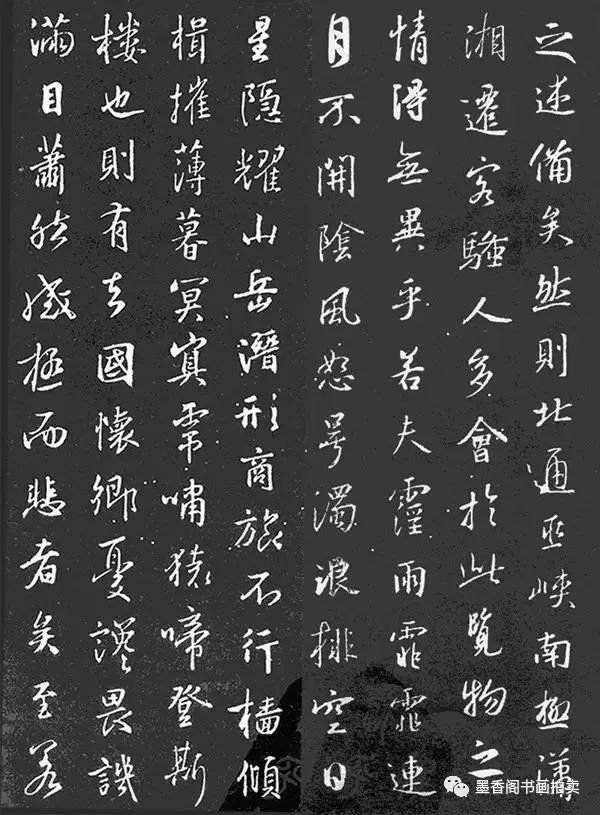 之述備矣然則北通巫峽南極瀟
湘遷客騷人多會於此覽物之
情得無異乎若夫霪雨霏霏連
月不開陰風怒号濁浪排空日
星隱耀山岳潛形商旅不行檣傾
楫摧薄暮冥冥虎嘯猿啼登斯
樓也則有去國懷鄉憂讒畏譏
滿目蕭然感極而悲者矣至若
墨香阁书画拍卖